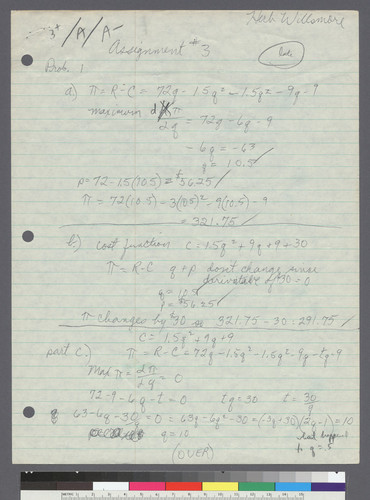 Herb Willsmore
3+ /A/A-
Assignment #3
late
Prob. 1
a) π = R-C = 72q - 1.5q² - 1.5q² - 9q - 9
maximum dπ/2q = 72q - 6q - 9
- 6q = -63
q = 10.5
p = 72 - 1.5(10.5) = $56.25
π = 72(10.5) - 3(10.5)² - 9(10.5) - 9
= 321.75
b) cost function C = 1.5q² + 9q + 9 + 30
π = R-C q + p don't change since
derivative of 30 = 0
q = 10.5
p = $56.25
π changes by $30 321.75 - 30 = 291.75
C = 1.5q² + 9q + 9
part C.) π = R-C = 72q - 1.5q² - 1.5q² - 9q - tq - 9
Max π = 2π/2q = 0
72 - 9 - 6q - t = 0 tq = 30 t = 30/q
63 - 6q - 30/q = 0 = 63q - 6q² - 30 = (-3q + 30)(2q - 1) = 10
q = 10
what happened
to q = .5
(OVER)